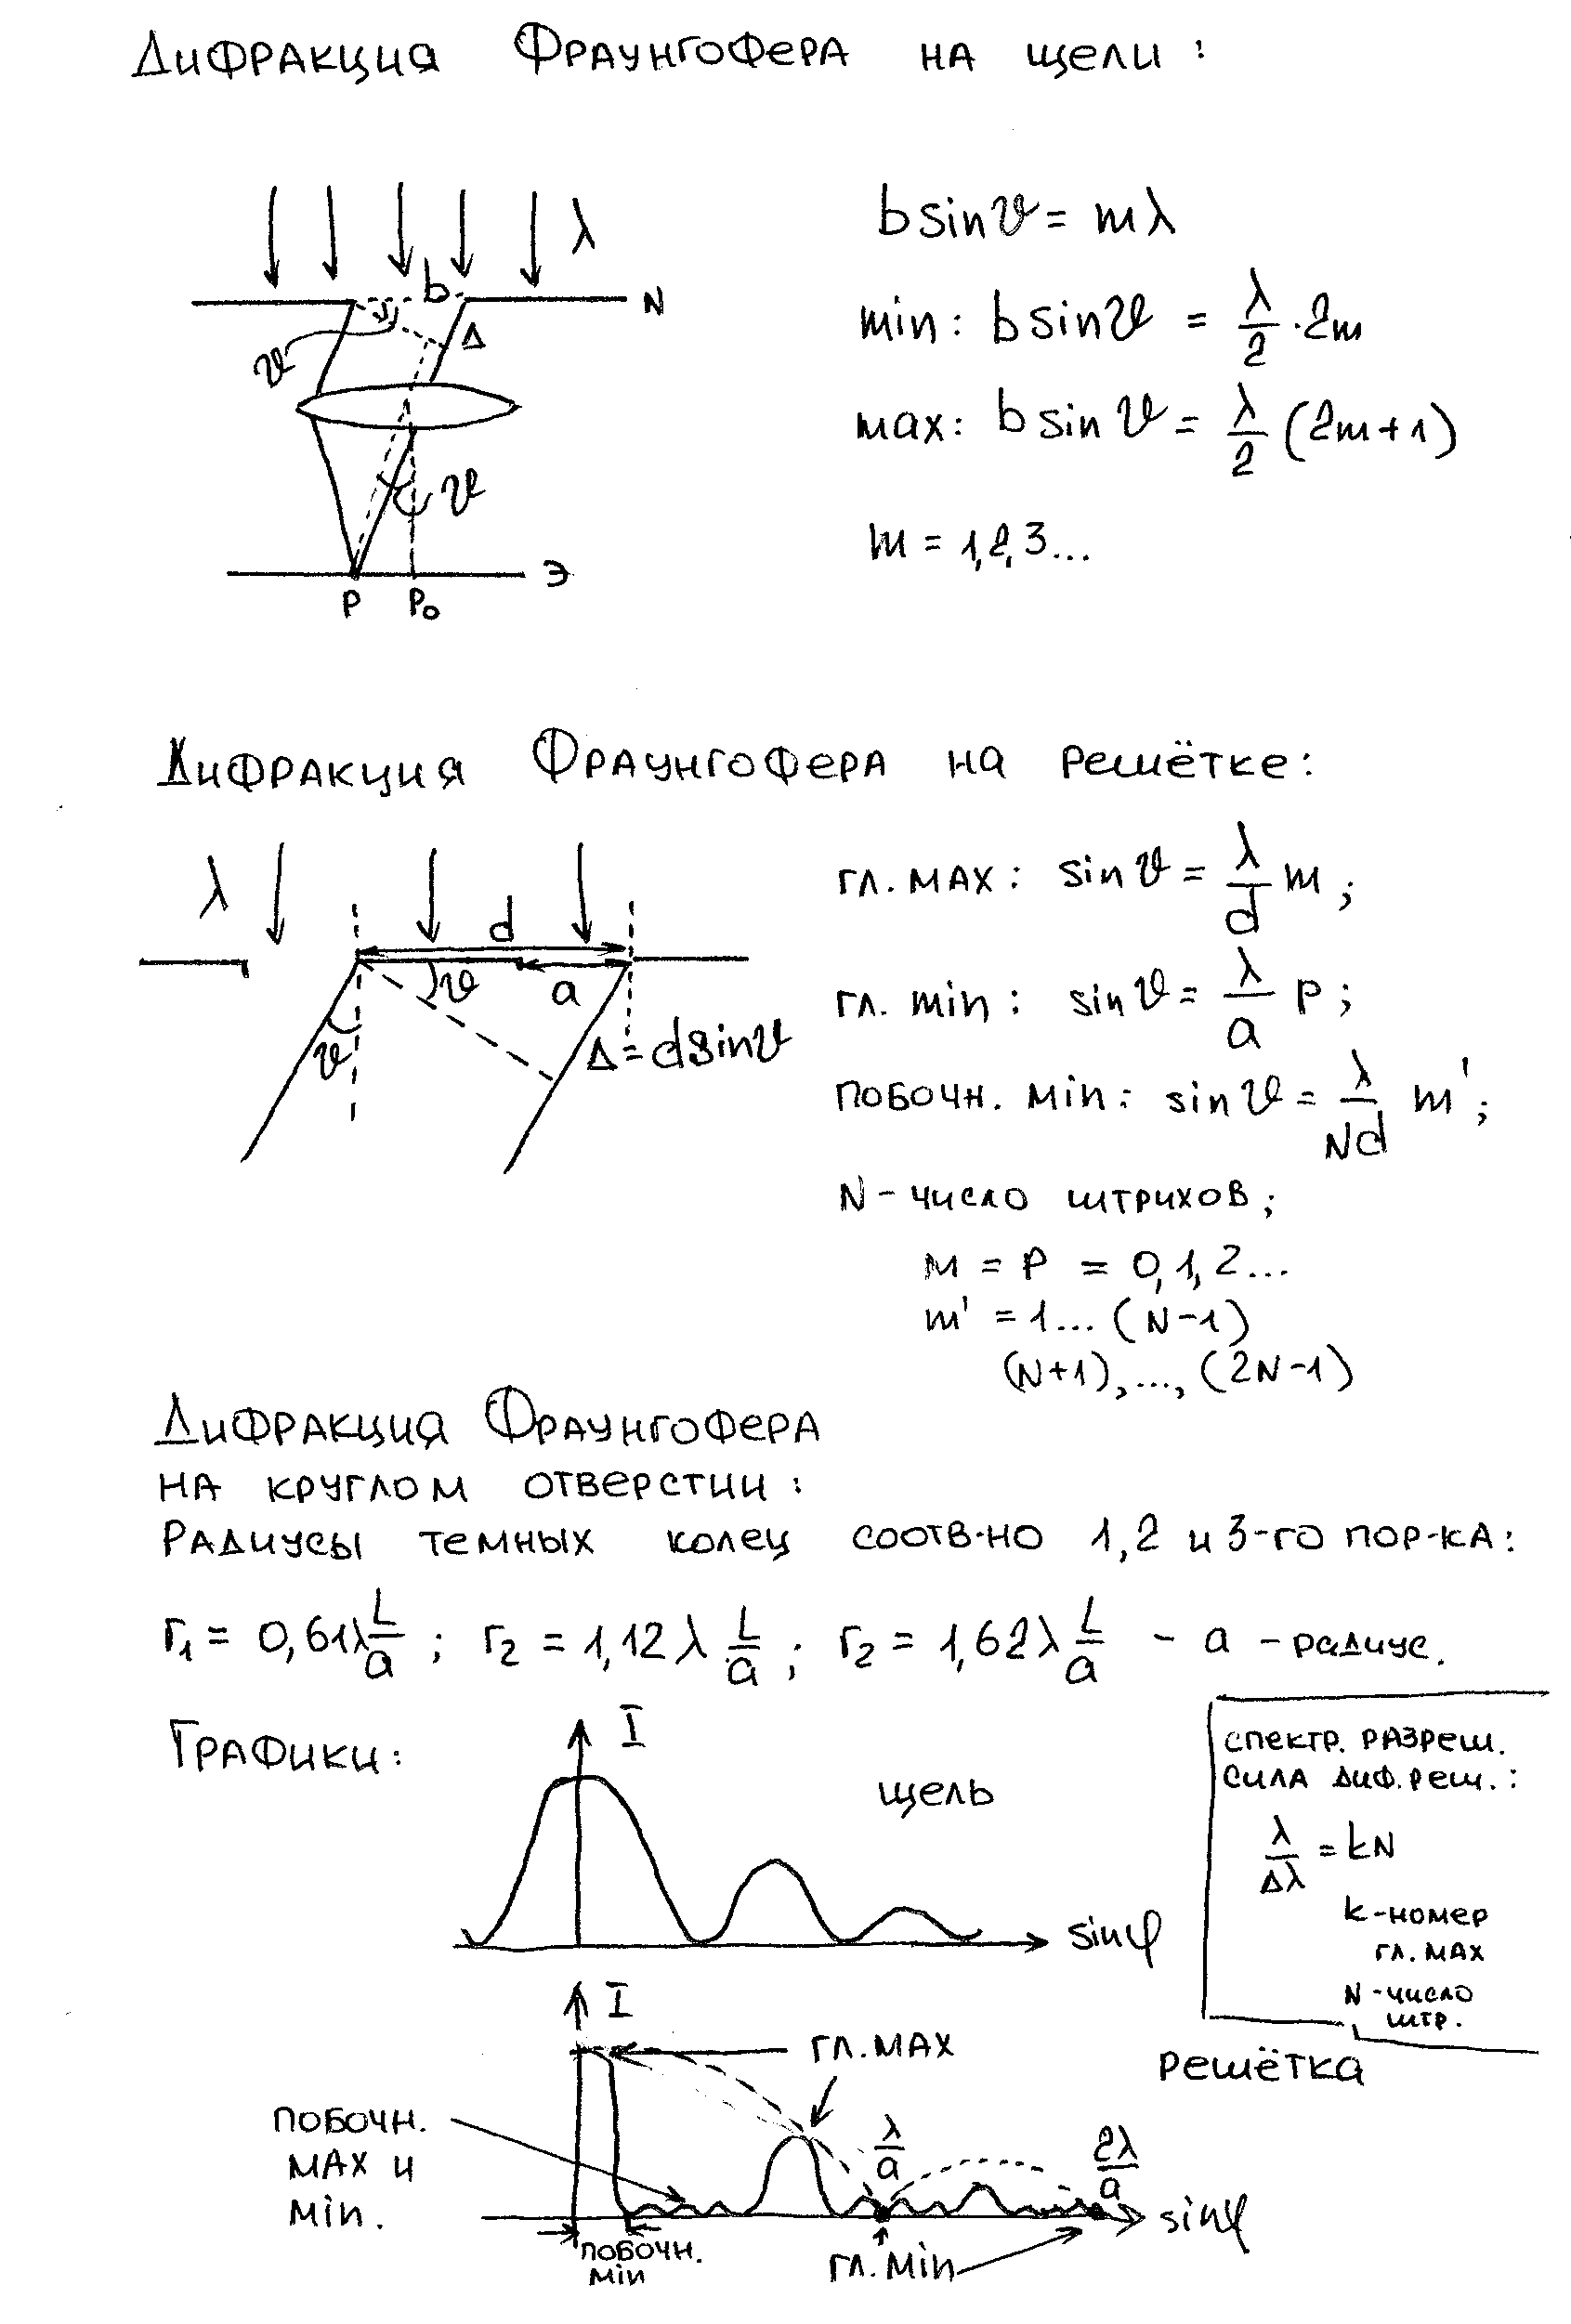 Дифракция Фраунгофера на щели:
λ
b sin ϑ = mλ
b
N
min: b sin ϑ = λ/2 · 2m
Δ
ϑ
max: b sin ϑ = λ/2 (2m+1)
ϑ
m = 1,2,3...
Э
P P₀
Дифракция Фраунгофера на решётке:
λ
гл. max: sin ϑ = λ/d m;
d
ϑ
a
гл. min: sin ϑ = λ/a p;
ϑ
Δ = d sin ϑ
побочн. min: sin ϑ = λ/Nd m';
N - число штрихов;
m = p = 0,1,2...
m' = 1...(N-1)
(N+1),...,(2N-1)
Дифракция Фраунгофера
на круглом отверстии:
Радиусы темных колец соотв-но 1,2 и 3-го пор-ка:
r₁ = 0,61λ L/a ; r₂ = 1,12λ L/a ; r₂ = 1,62λ L/a - a - радиус.
Графики:
I
щель
sinφ
спектр. разреш.
сила диф. реш.:
λ/Δλ = kN
k - номер
гл. max
N - число
штр.
I
гл. max
решётка
побочн.
max и
min.
λ/a
2λ/a
sinφ
побочн.
min
гл. min